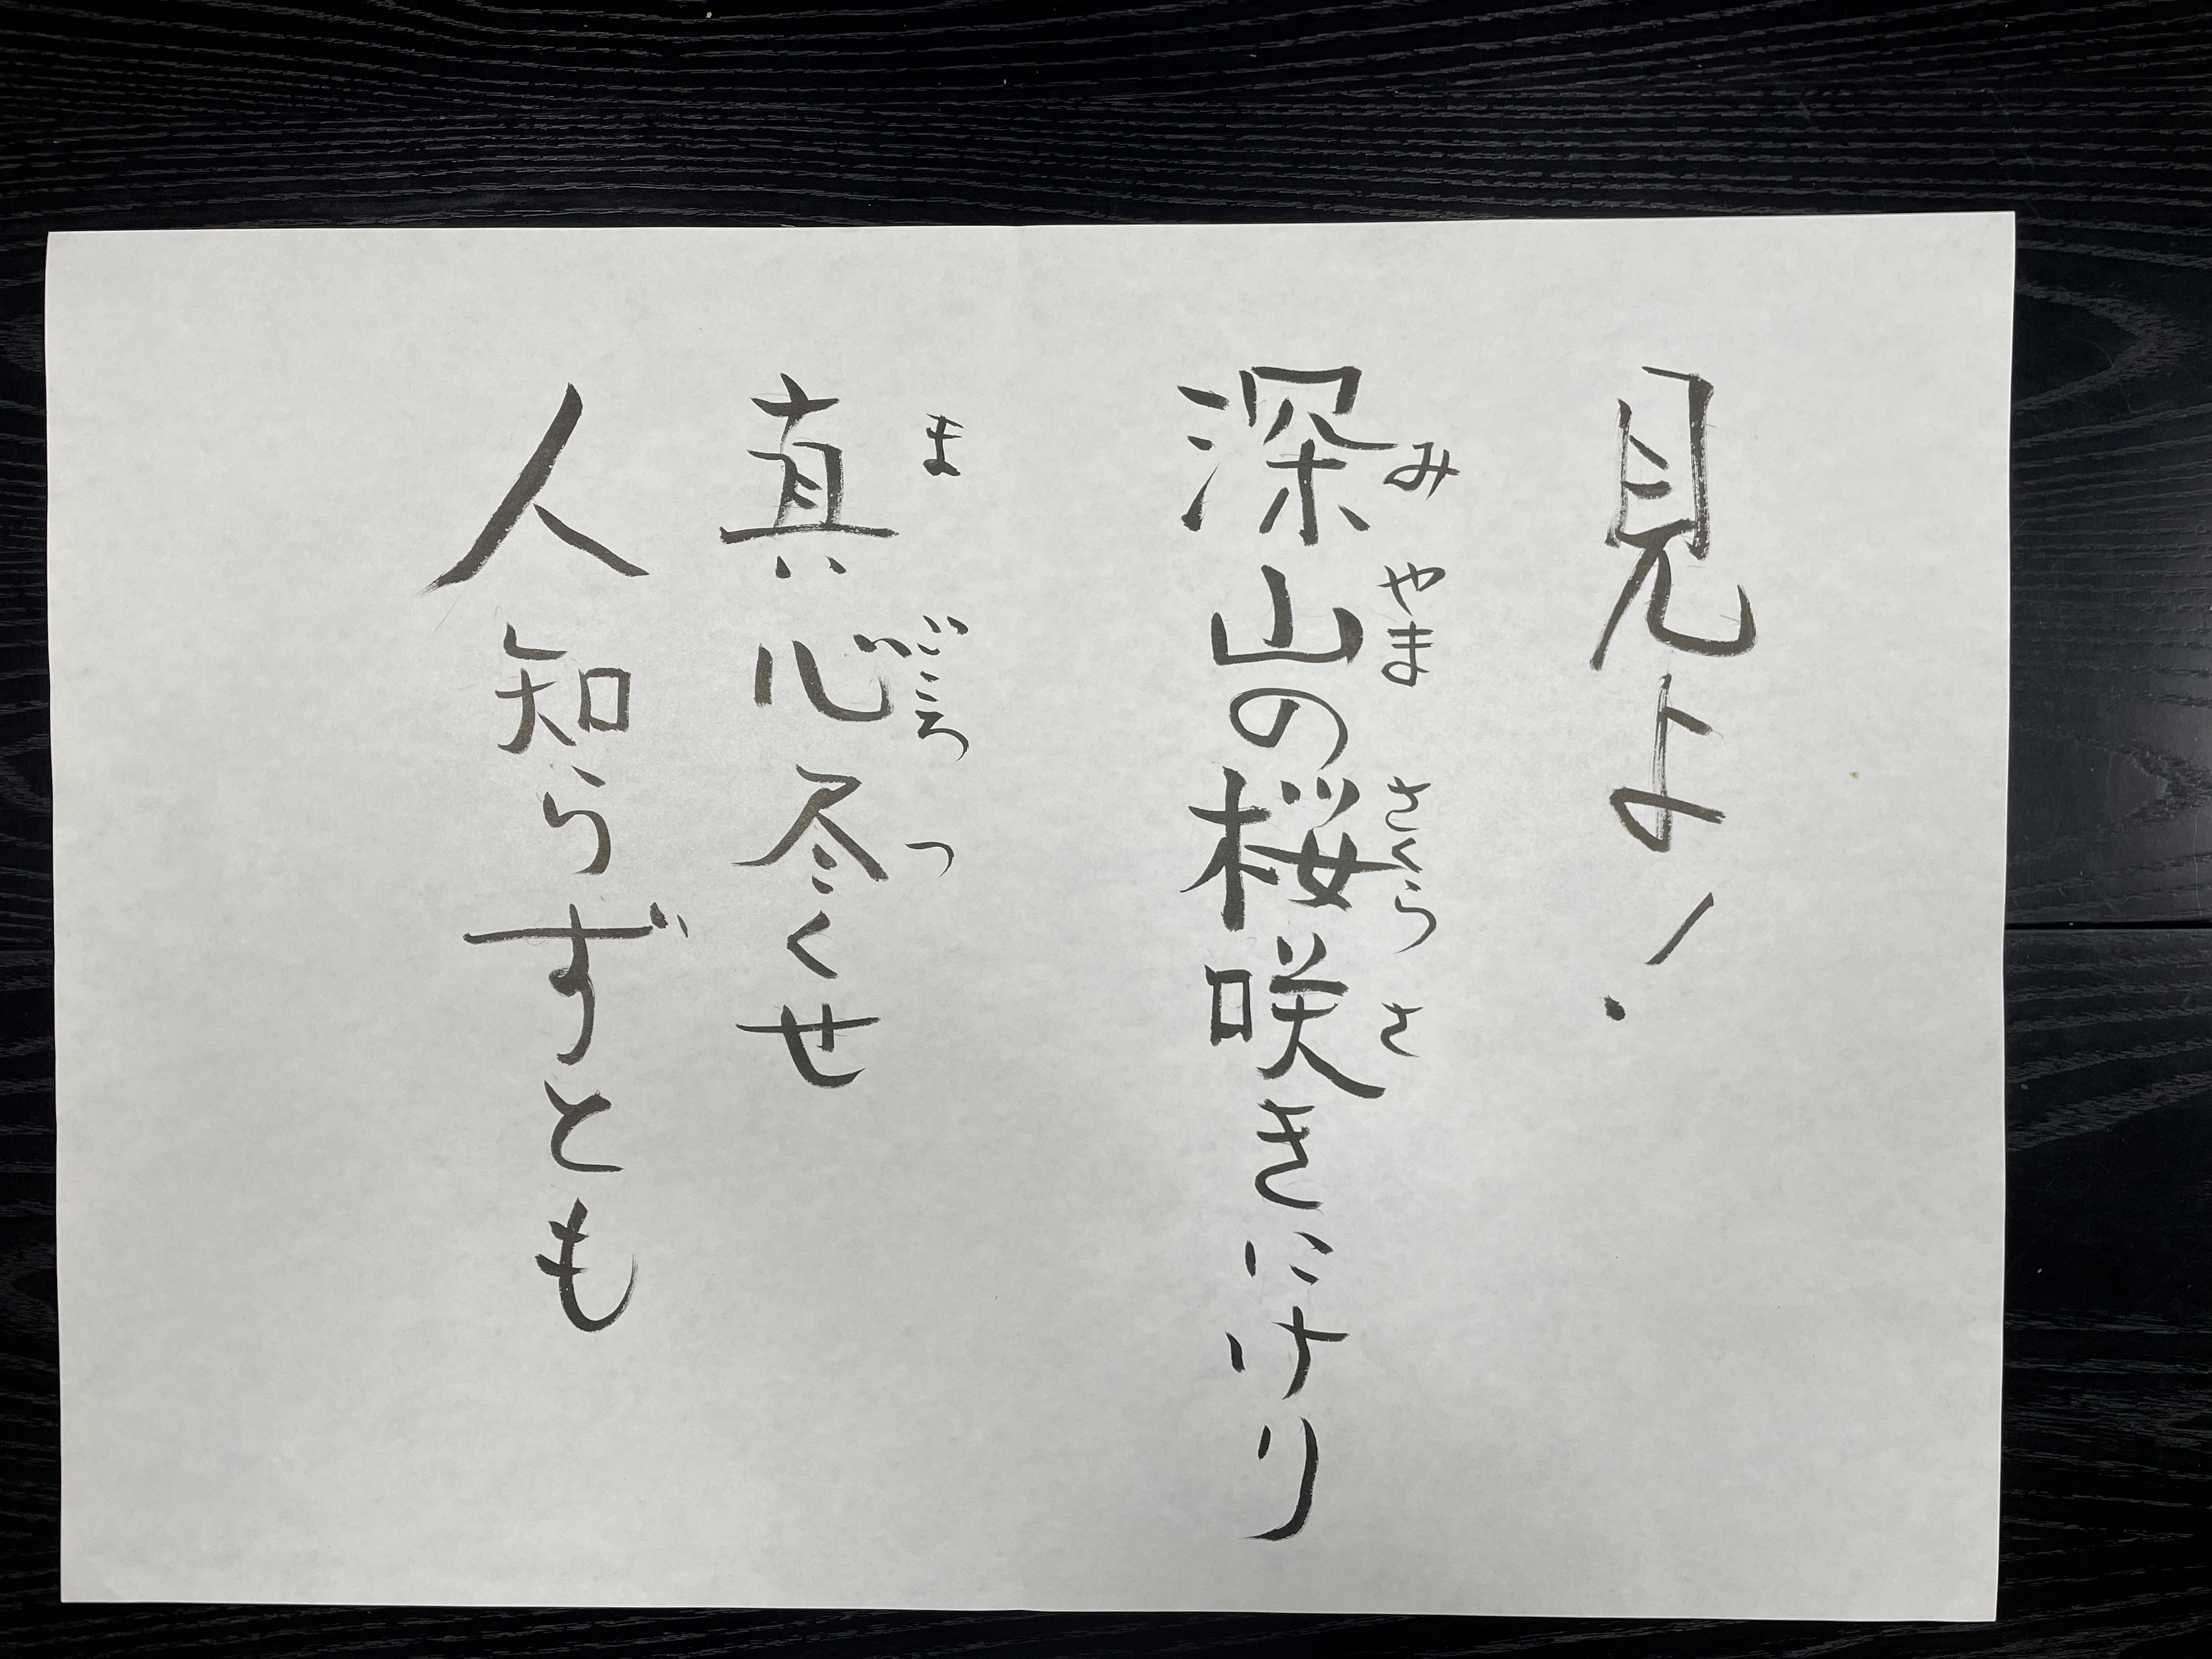 見よ！
みやま さくら さ
深山の桜咲きにけり
まごころ つ
真心尽くせ
人知らずとも